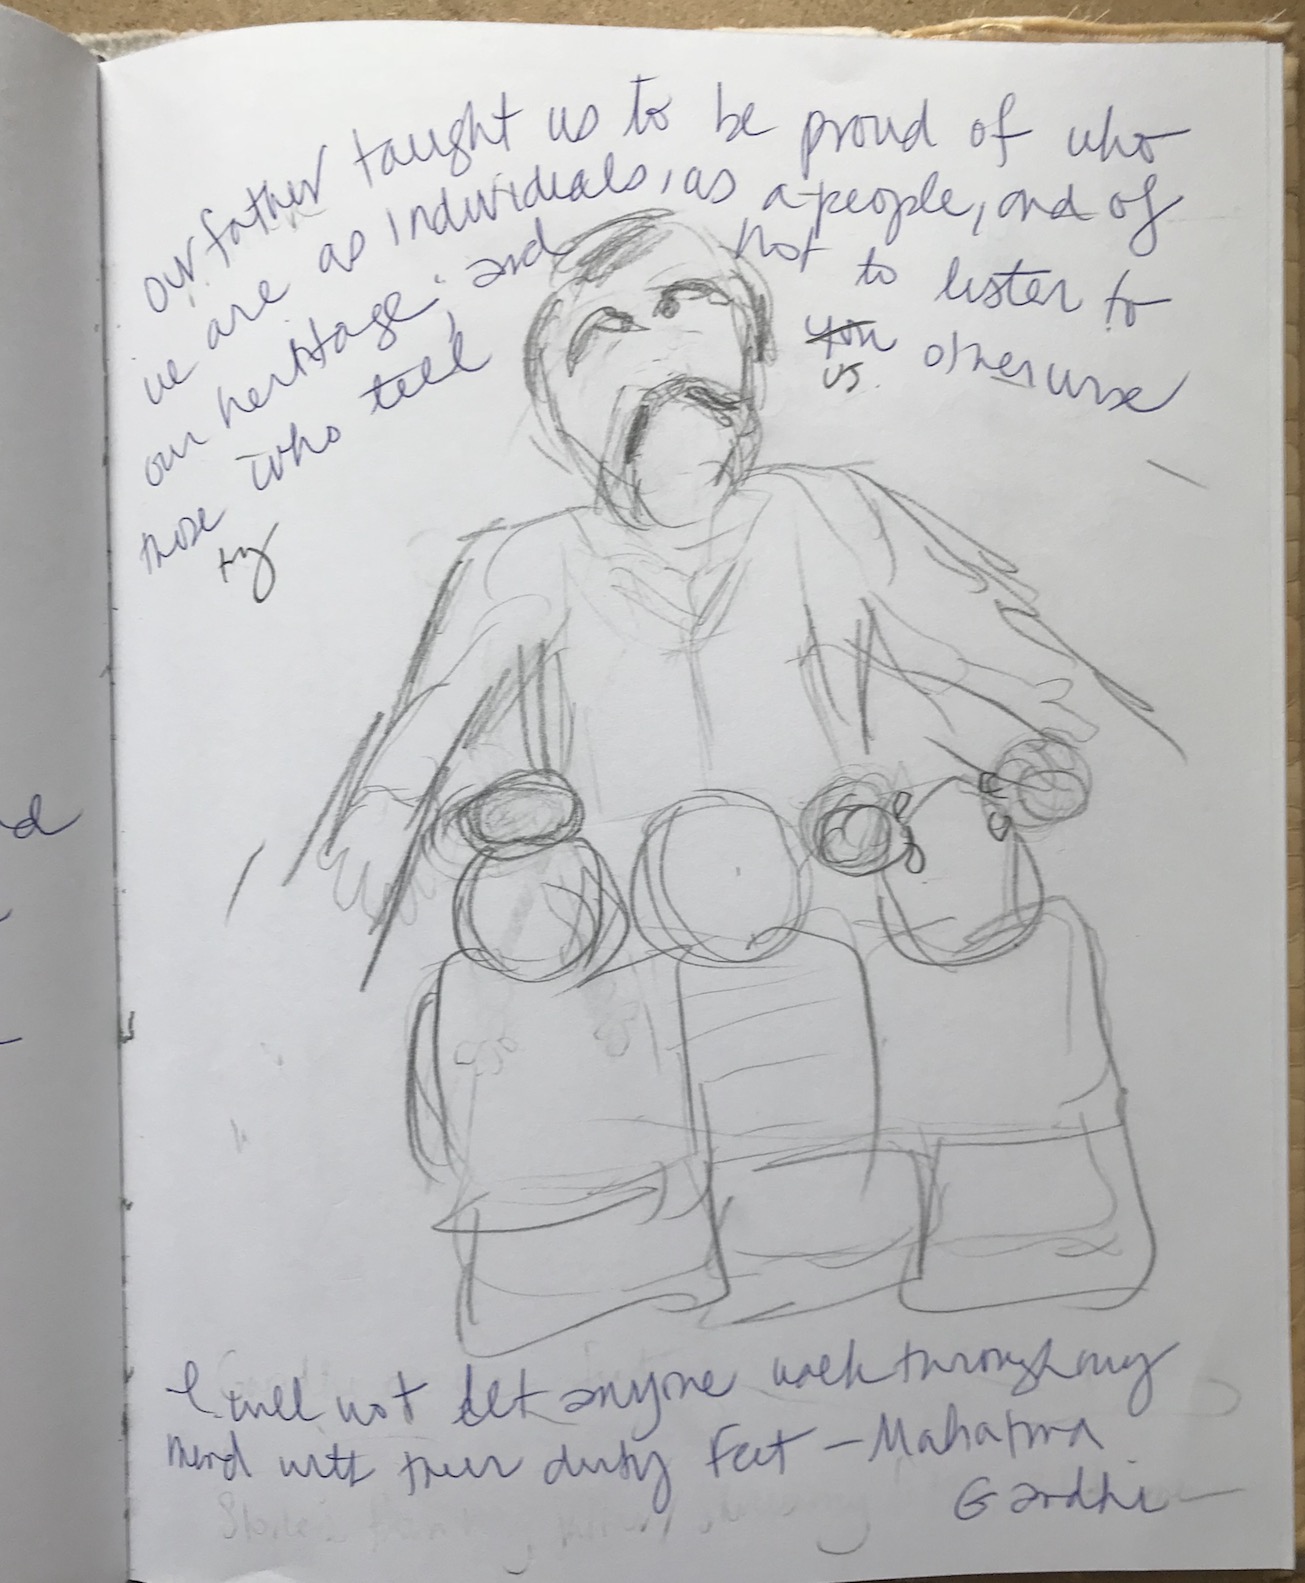 our father taught us to be proud of who
we are as individuals, as a people, and of
our heritage; and not to listen to
those who tell you otherwise
try us.
I will not let anyone walk through my
mind with their dirty feet - Mahatma
Gandhi